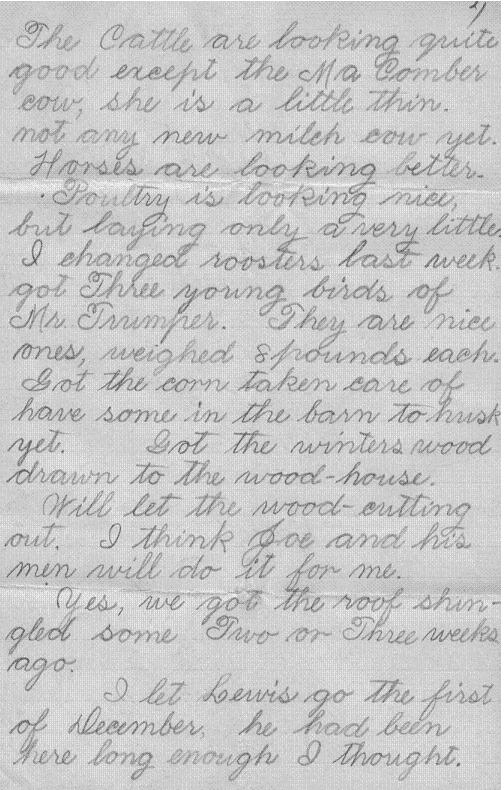 2)
The Cattle are looking quite
good except the Ma Comber
cow, she is a little thin.
not any new milch cow yet.
Horses are looking better.
Poultry is looking nice,
but laying only a very little.
I changed roosters last week.
got Three young birds of
Mr. Trumper. They are nice
ones, weighed 8 pounds each.
Got the corn taken care of
have some in the barn to husk
yet. Got the winters wood
drawn to the wood-house.
Will let the wood-cutting
out. I think Joe and his
men will do it for me.
Yes, we got the roof shin-
gled some Two or Three weeks
ago.
I let Lewis go the first
of December, he had been
here long enough I thought.